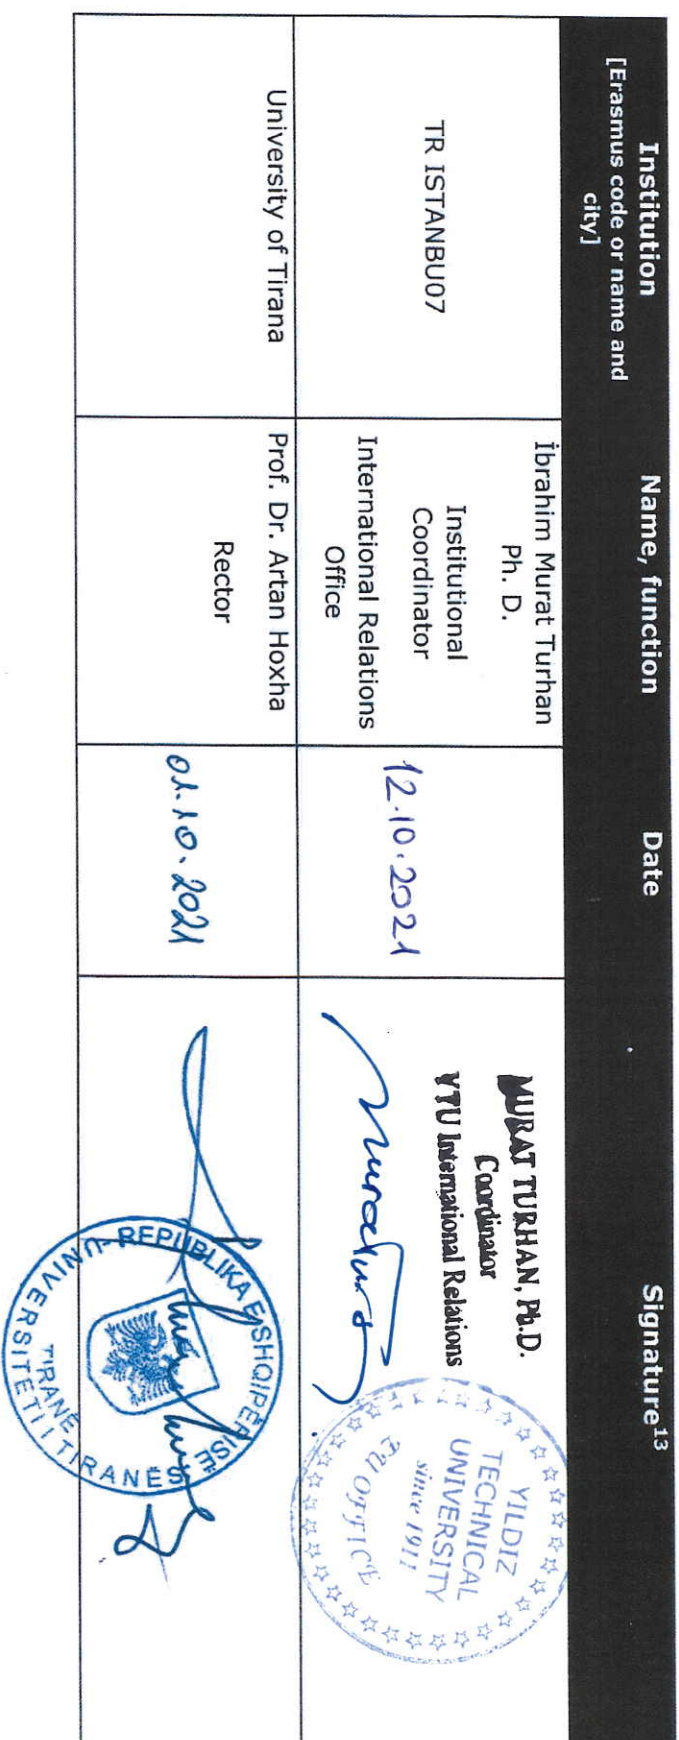 Institution
[Erasmus code or name and
city]
Name, function
Date
Signature13
TR ISTANBU07
İbrahim Murat Turhan
Ph. D.
Institutional
Coordinator
International Relations
Office
12.10.2021
MURAT TURHAN, Ph.D.
Coordinator
YTU International Relations
YILDIZ
TECHNICAL
UNIVERSITY
since 1911
OFFICE
University of Tirana
Prof. Dr. Artan Hoxha
Rector
01.10.2021
REPUBLIKA E SHQIPËRISË
UNIVERSITETI I TIRANËS
TIRANË